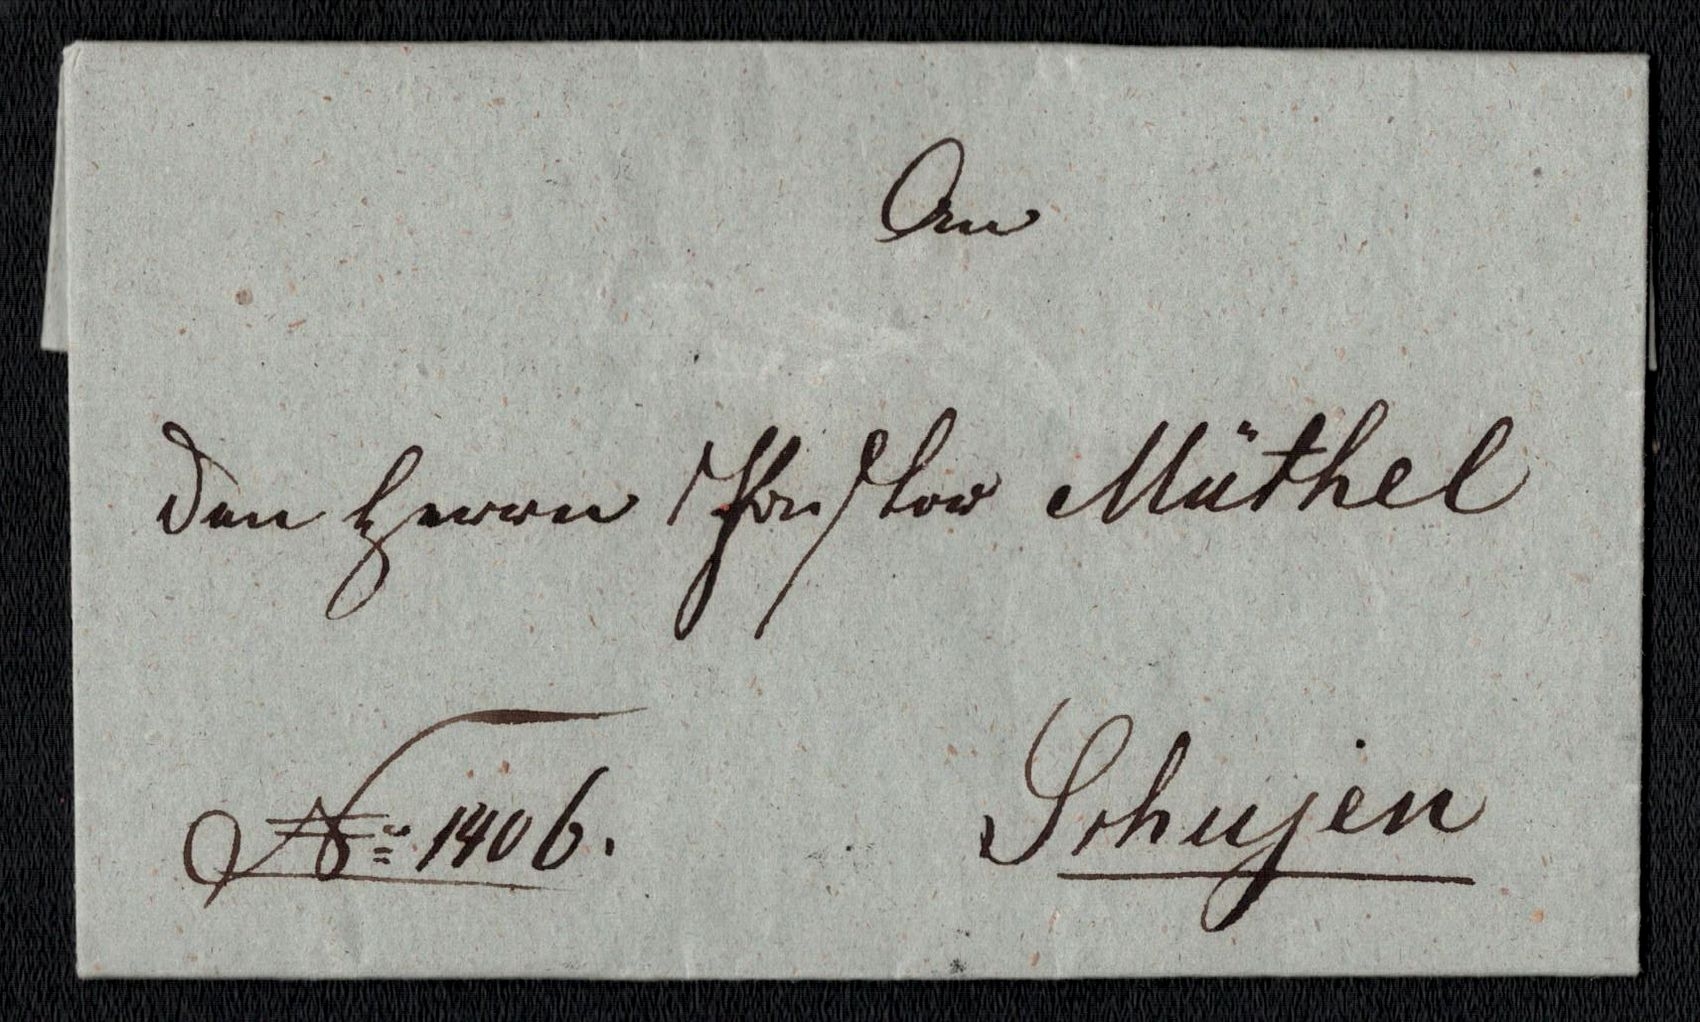 An
den Herrn Pastor Müthel
No 1406.
Schujen